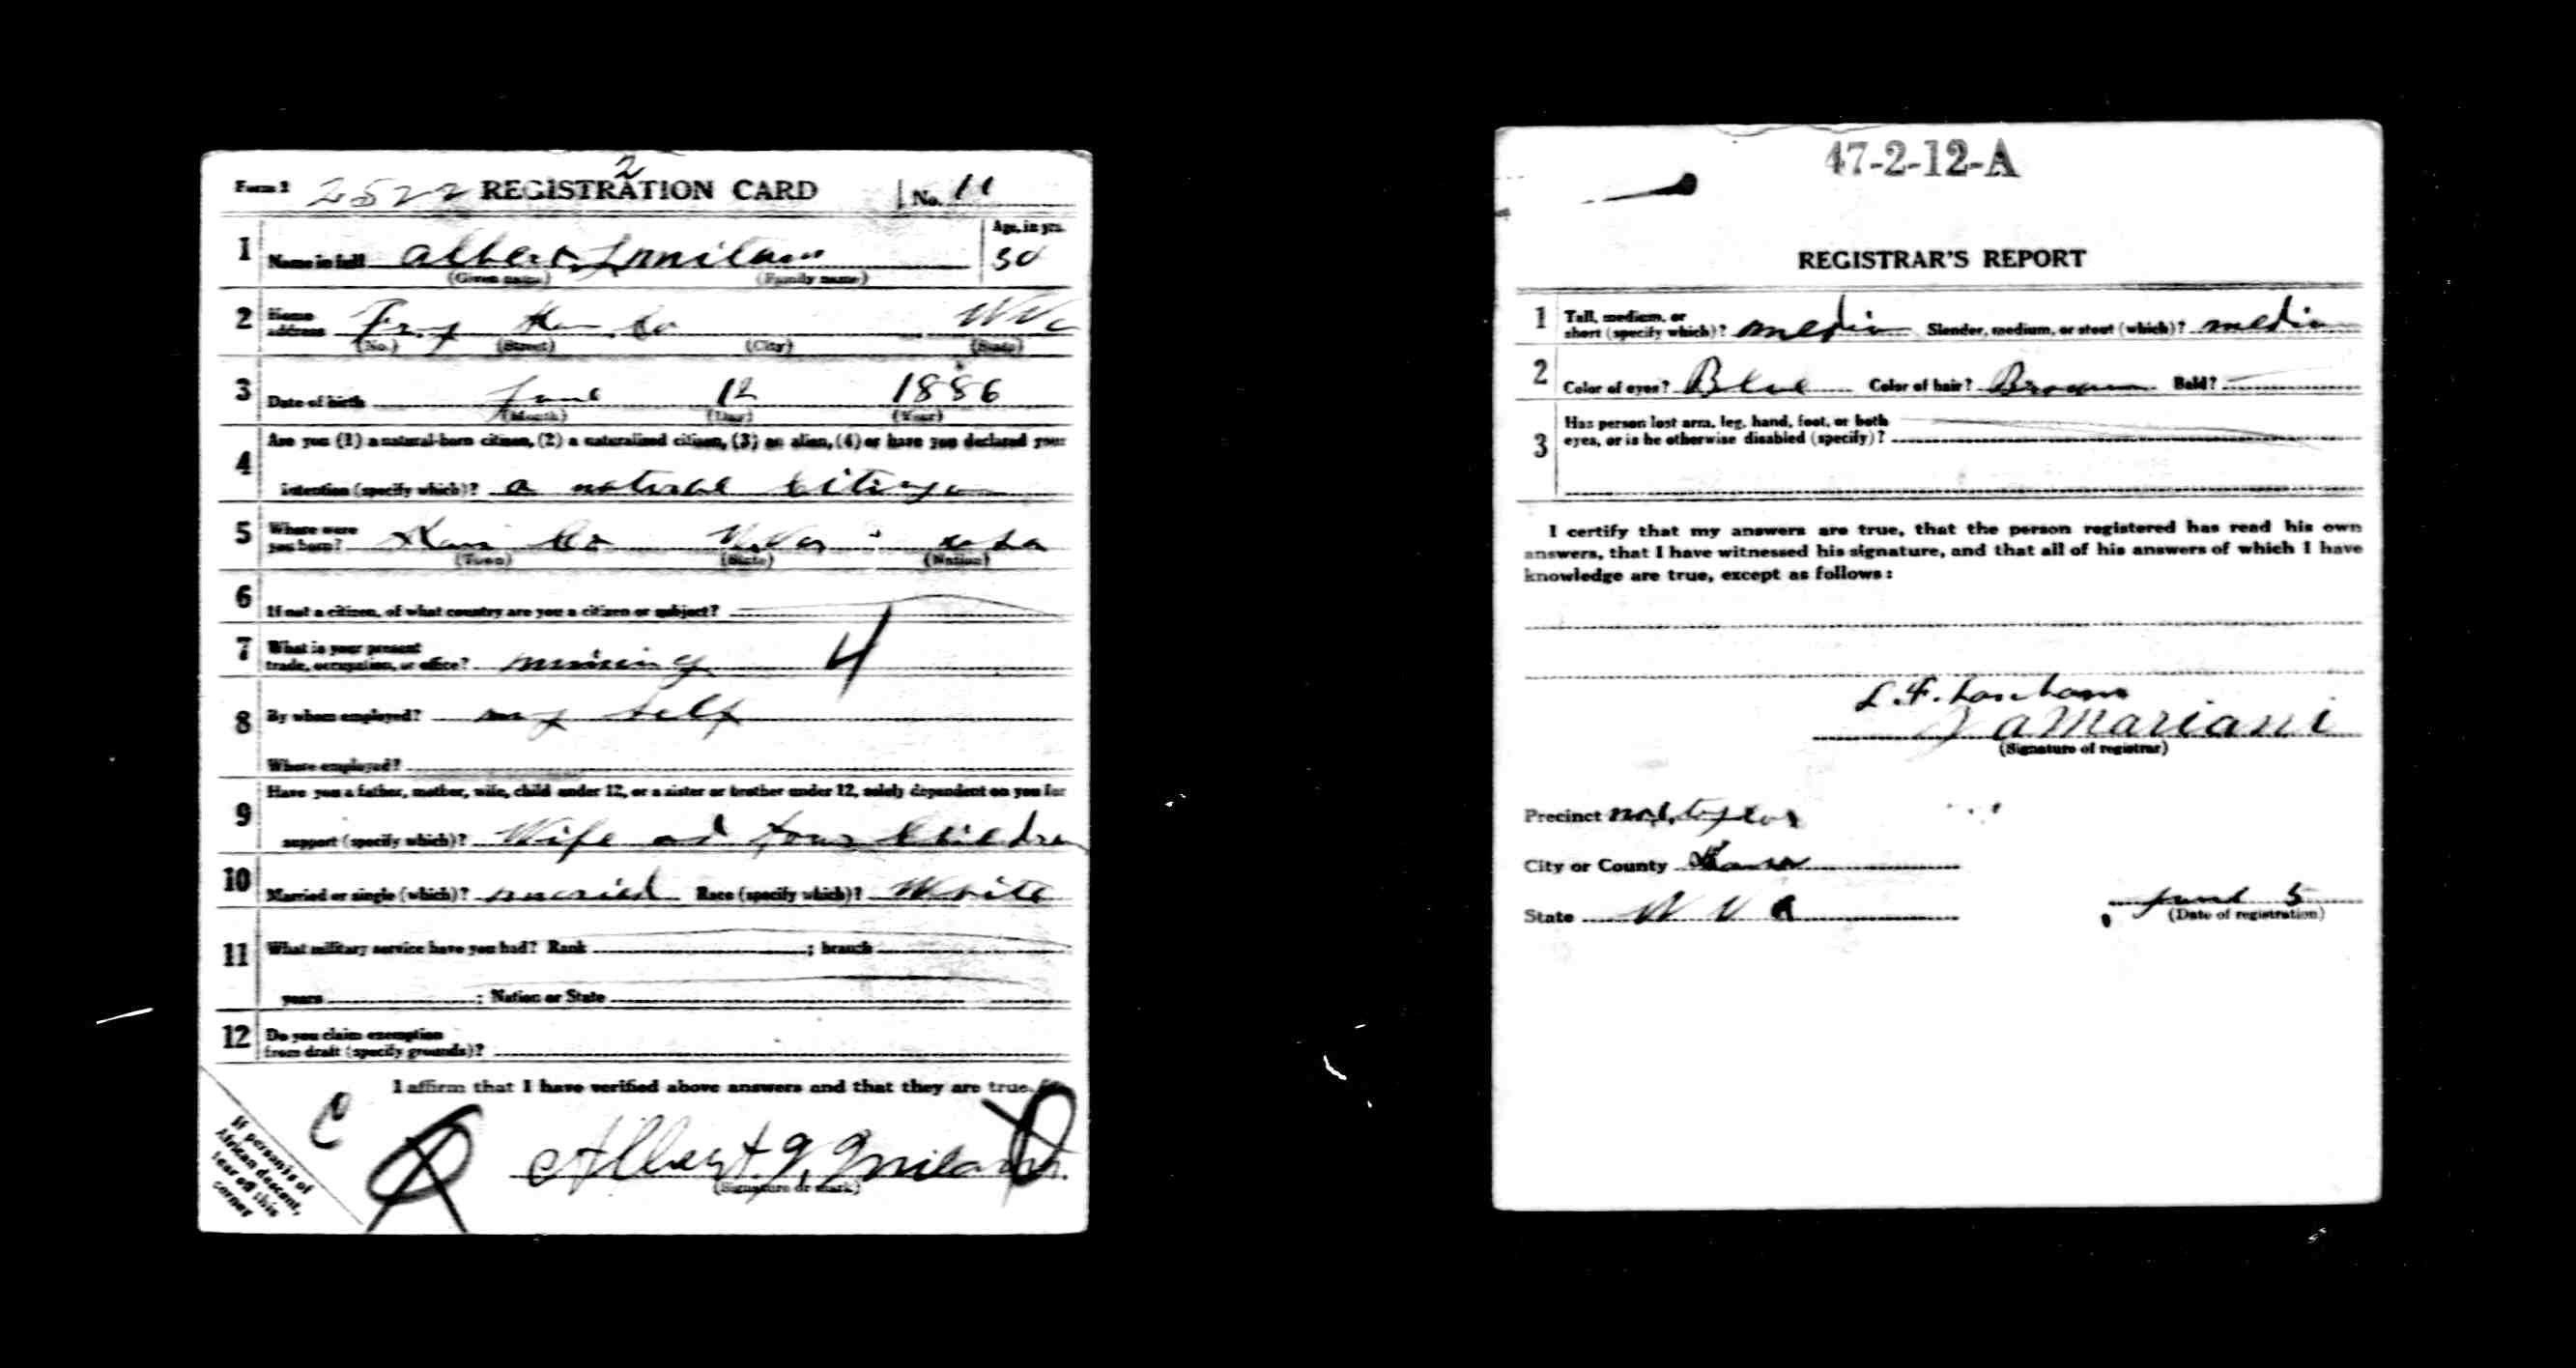 2
Form 1 2522 REGISTRATION CARD No. 11
1 Name in full Albert Milam Age, in yrs. 30
(Given name) (Family name)
2 Home address Co W Va
(No.) (Street) (City) (State)
3 Date of birth June 12 1886
(Month) (Day) (Year)
4 Are you (1) a natural-born citizen, (2) a naturalized citizen, (3) an alien, (4) or have you declared your
intention (specify which)? a natural
5 Where were you born? Co W.Va
(Town) (State) (Nation)
6 If not a citizen, of what country are you a citizen or subject?
7 What is your present trade, occupation, or office? mining 4
8 By whom employed? my self
Where employed?
9 Have you a father, mother, wife, child under 12, or a sister or brother under 12, solely dependent on you for
support (specify which)? Wife and four Children
10 Married or single (which)? married Race (specify which)? White
11 What military service have you had? Rank ; branch
years ; Nation or State
12 Do you claim exemption
from draft (specify grounds)?
I affirm that I have verified above answers and that they are true.
C
Albert Milam
(Signature or mark)
If person is of
African descent,
tear off this
corner
47-2-12-A
REGISTRAR'S REPORT
1 Tall, medium, or
short (specify which)? Slender, medium, or stout (which)?
2 Color of eyes? Blue Color of hair? Brown Bald?
3 Has person lost arm, leg, hand, foot, or both
eyes, or is he otherwise disabled (specify)?
I certify that my answers are true, that the person registered has read his own
answers, that I have witnessed his signature, and that all of his answers of which I have
knowledge are true, except as follows:
L. F.
J A Mariani
(Signature of registrar)
Precinct
City or County
State W V a
June 5
(Date of registration)